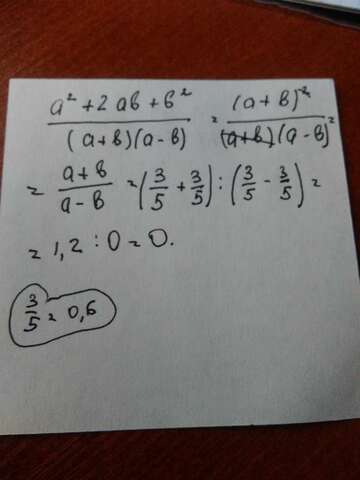 a² + 2 ab + b² / (a+b)(a-b) = (a+b)² / (a+b)(a-b) =
= a+b / a-b = (3/5 + 3/5) : (3/5 - 3/5) =
= 1,2 : 0 = 0.
3/5 = 0,6